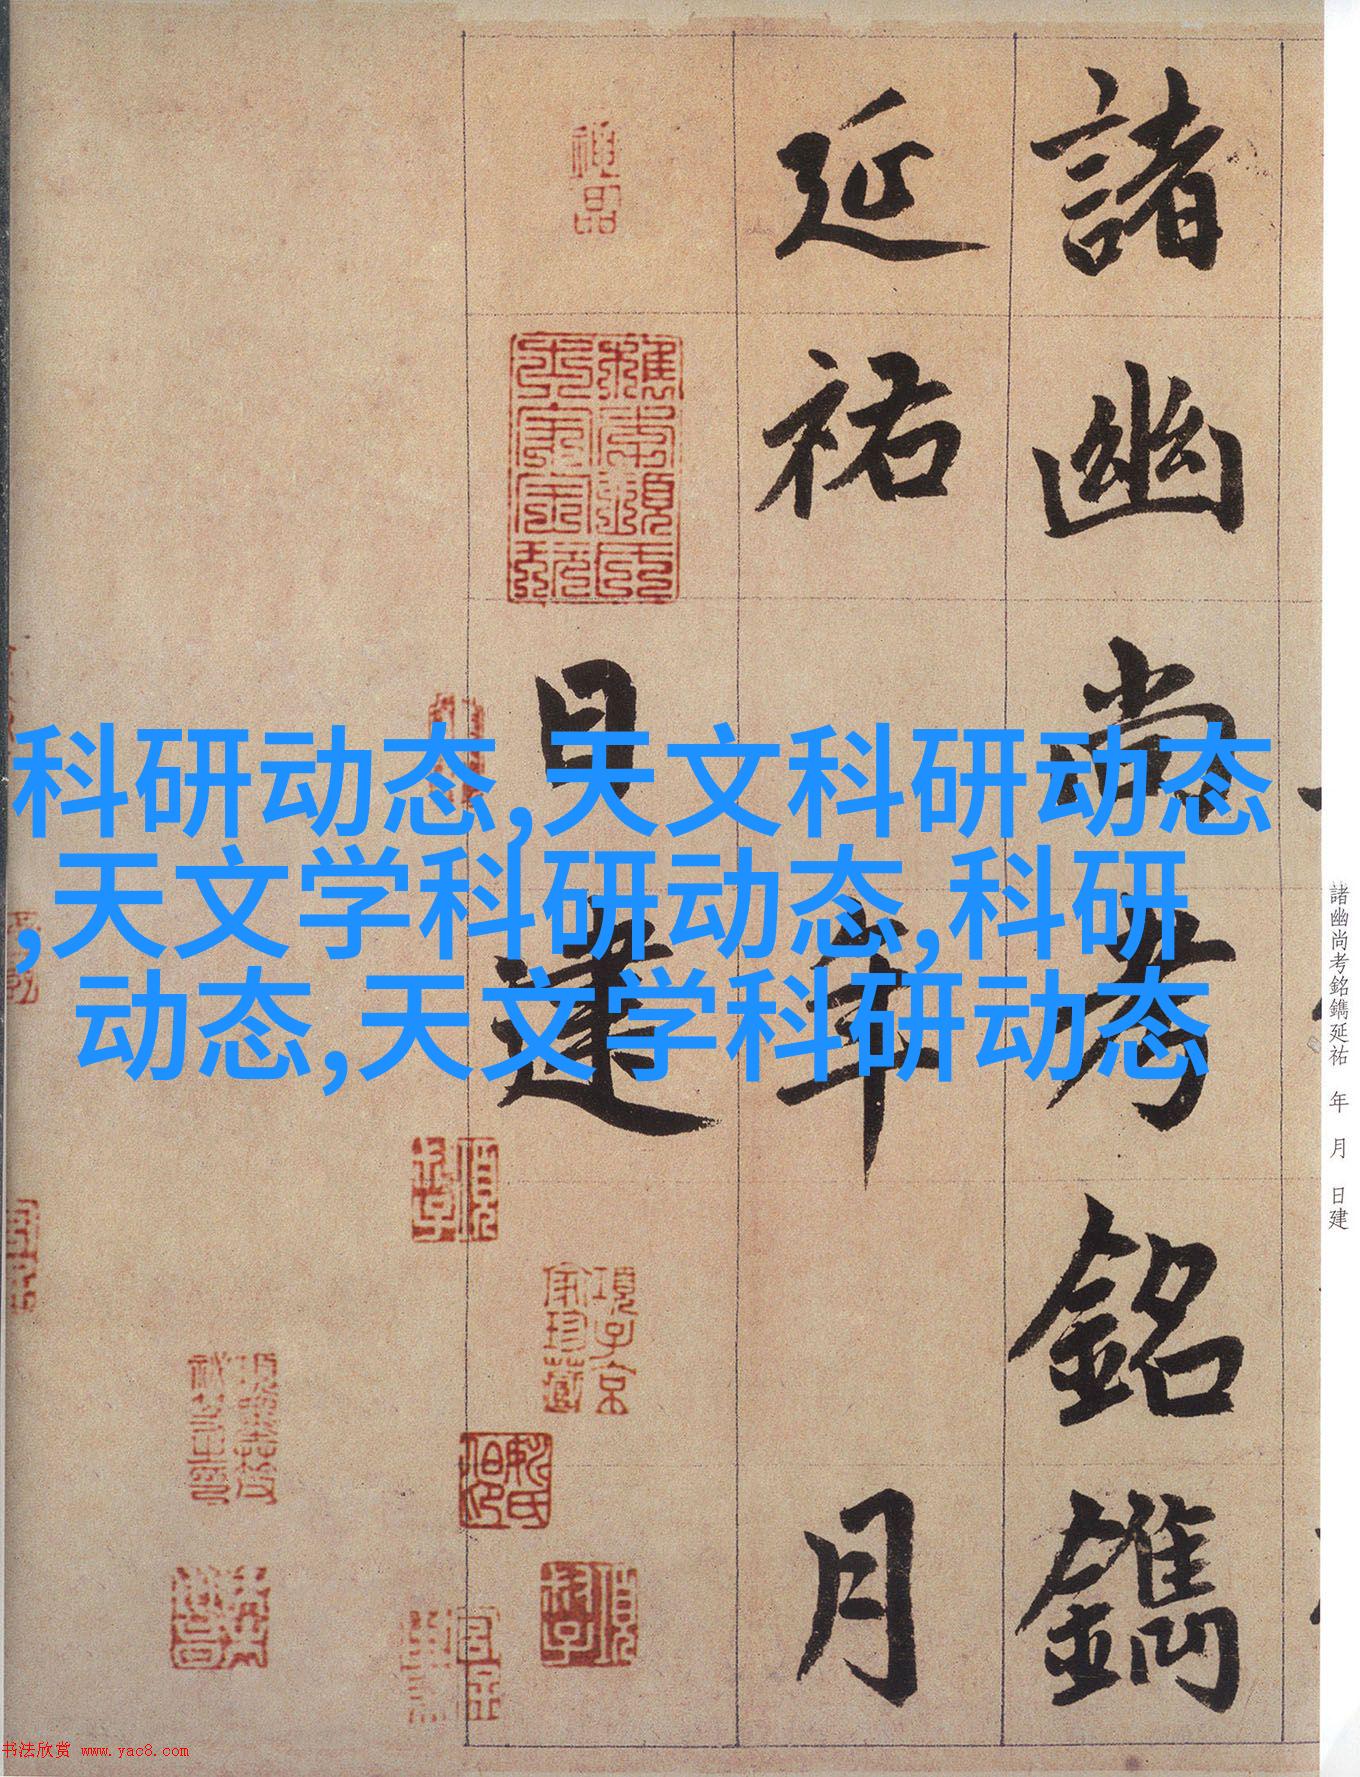 諸幽尚考銘鐫
延祐 年 月
日建
科研动态,天文科研动态
,天文学科研动态,科研
动态,天文学科研动态
諸幽尚考銘鐫延祐 年 月 日建
項子京
家珍藏
神品
书法欣赏 www.yac8.com